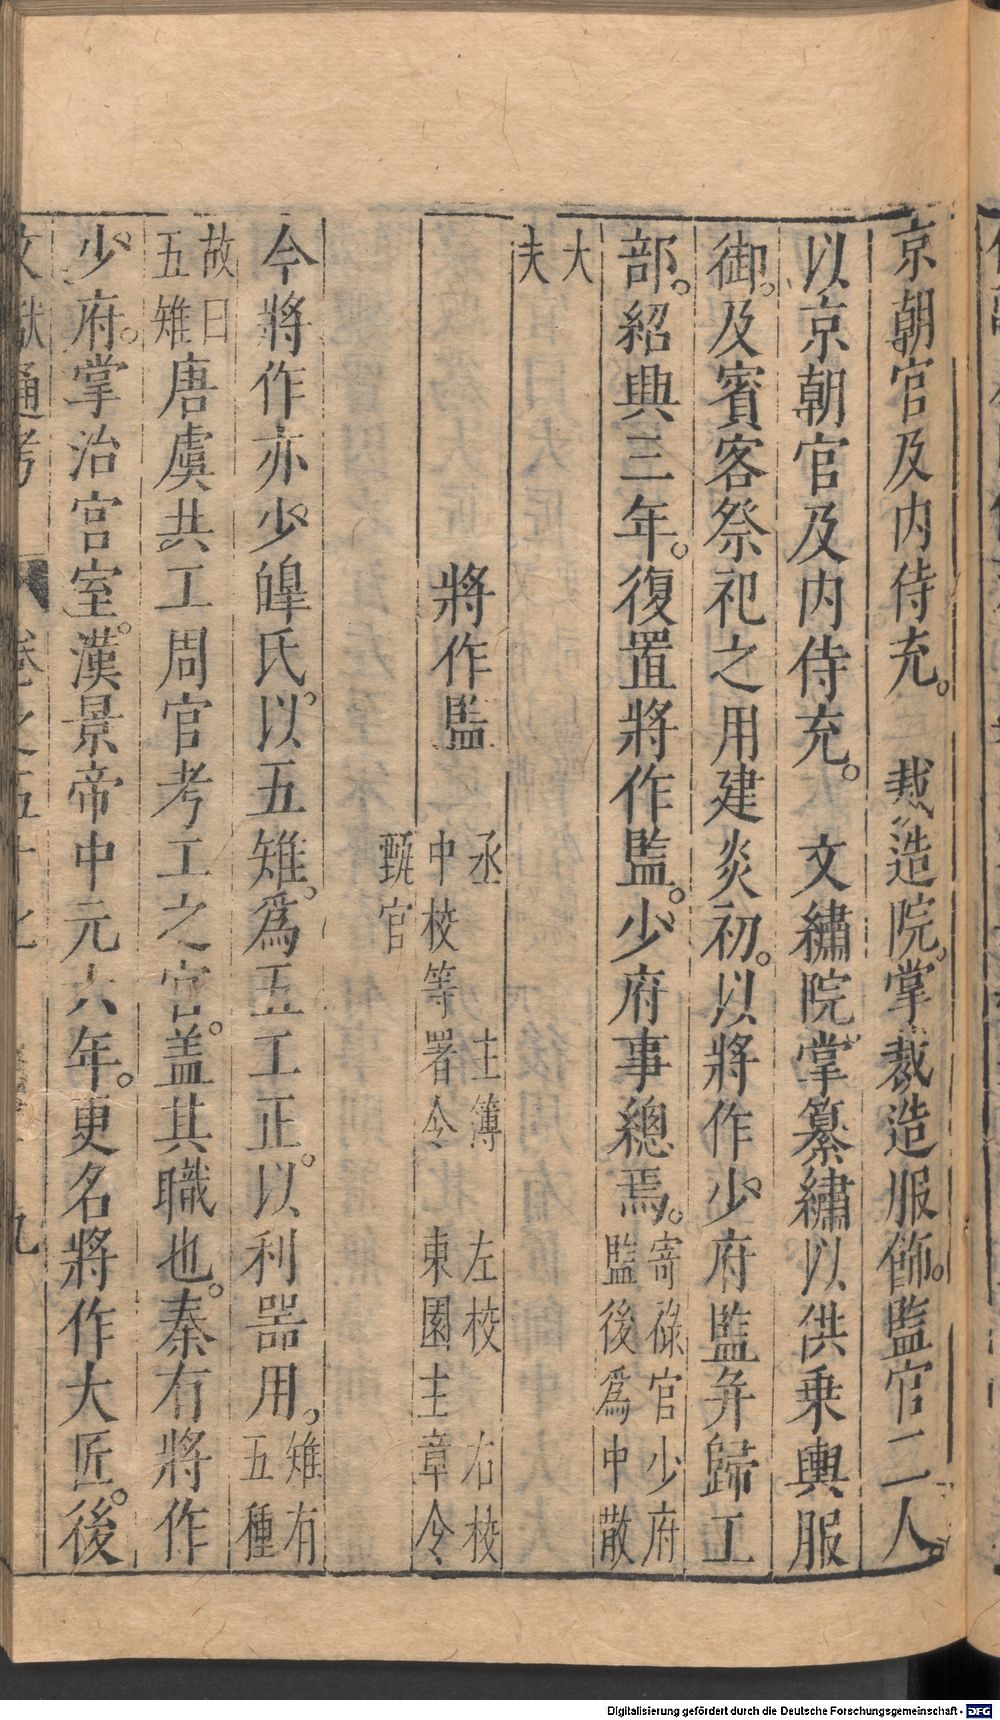 京朝官及内侍充。　裁造院。掌裁造服飾。監官二人。
以京朝官及内侍充。　文繡院。掌纂繡以供乗輿服
御。及賓客祭祀之用建炎初。以將作少府監并歸工
部。紹興三年。復置將作監。少府事總焉。寄祿官少府
監後爲中散
大
夫
將作監　丞　主簿　左校　右校
中校等署令　東園主章令
甄官
今將作亦少皥氏。以五雉。爲五工正。以利噐用。雉有
五種
故曰
五雉唐虞共工周官考工之官。盖其職也。秦有將作
少府。掌治宫室。漢景帝中元六年。更名將作大匠。後
文獻通考　卷之五十七　九
Digitalisierung gefördert durch die Deutsche Forschungsgemeinschaft - DFG